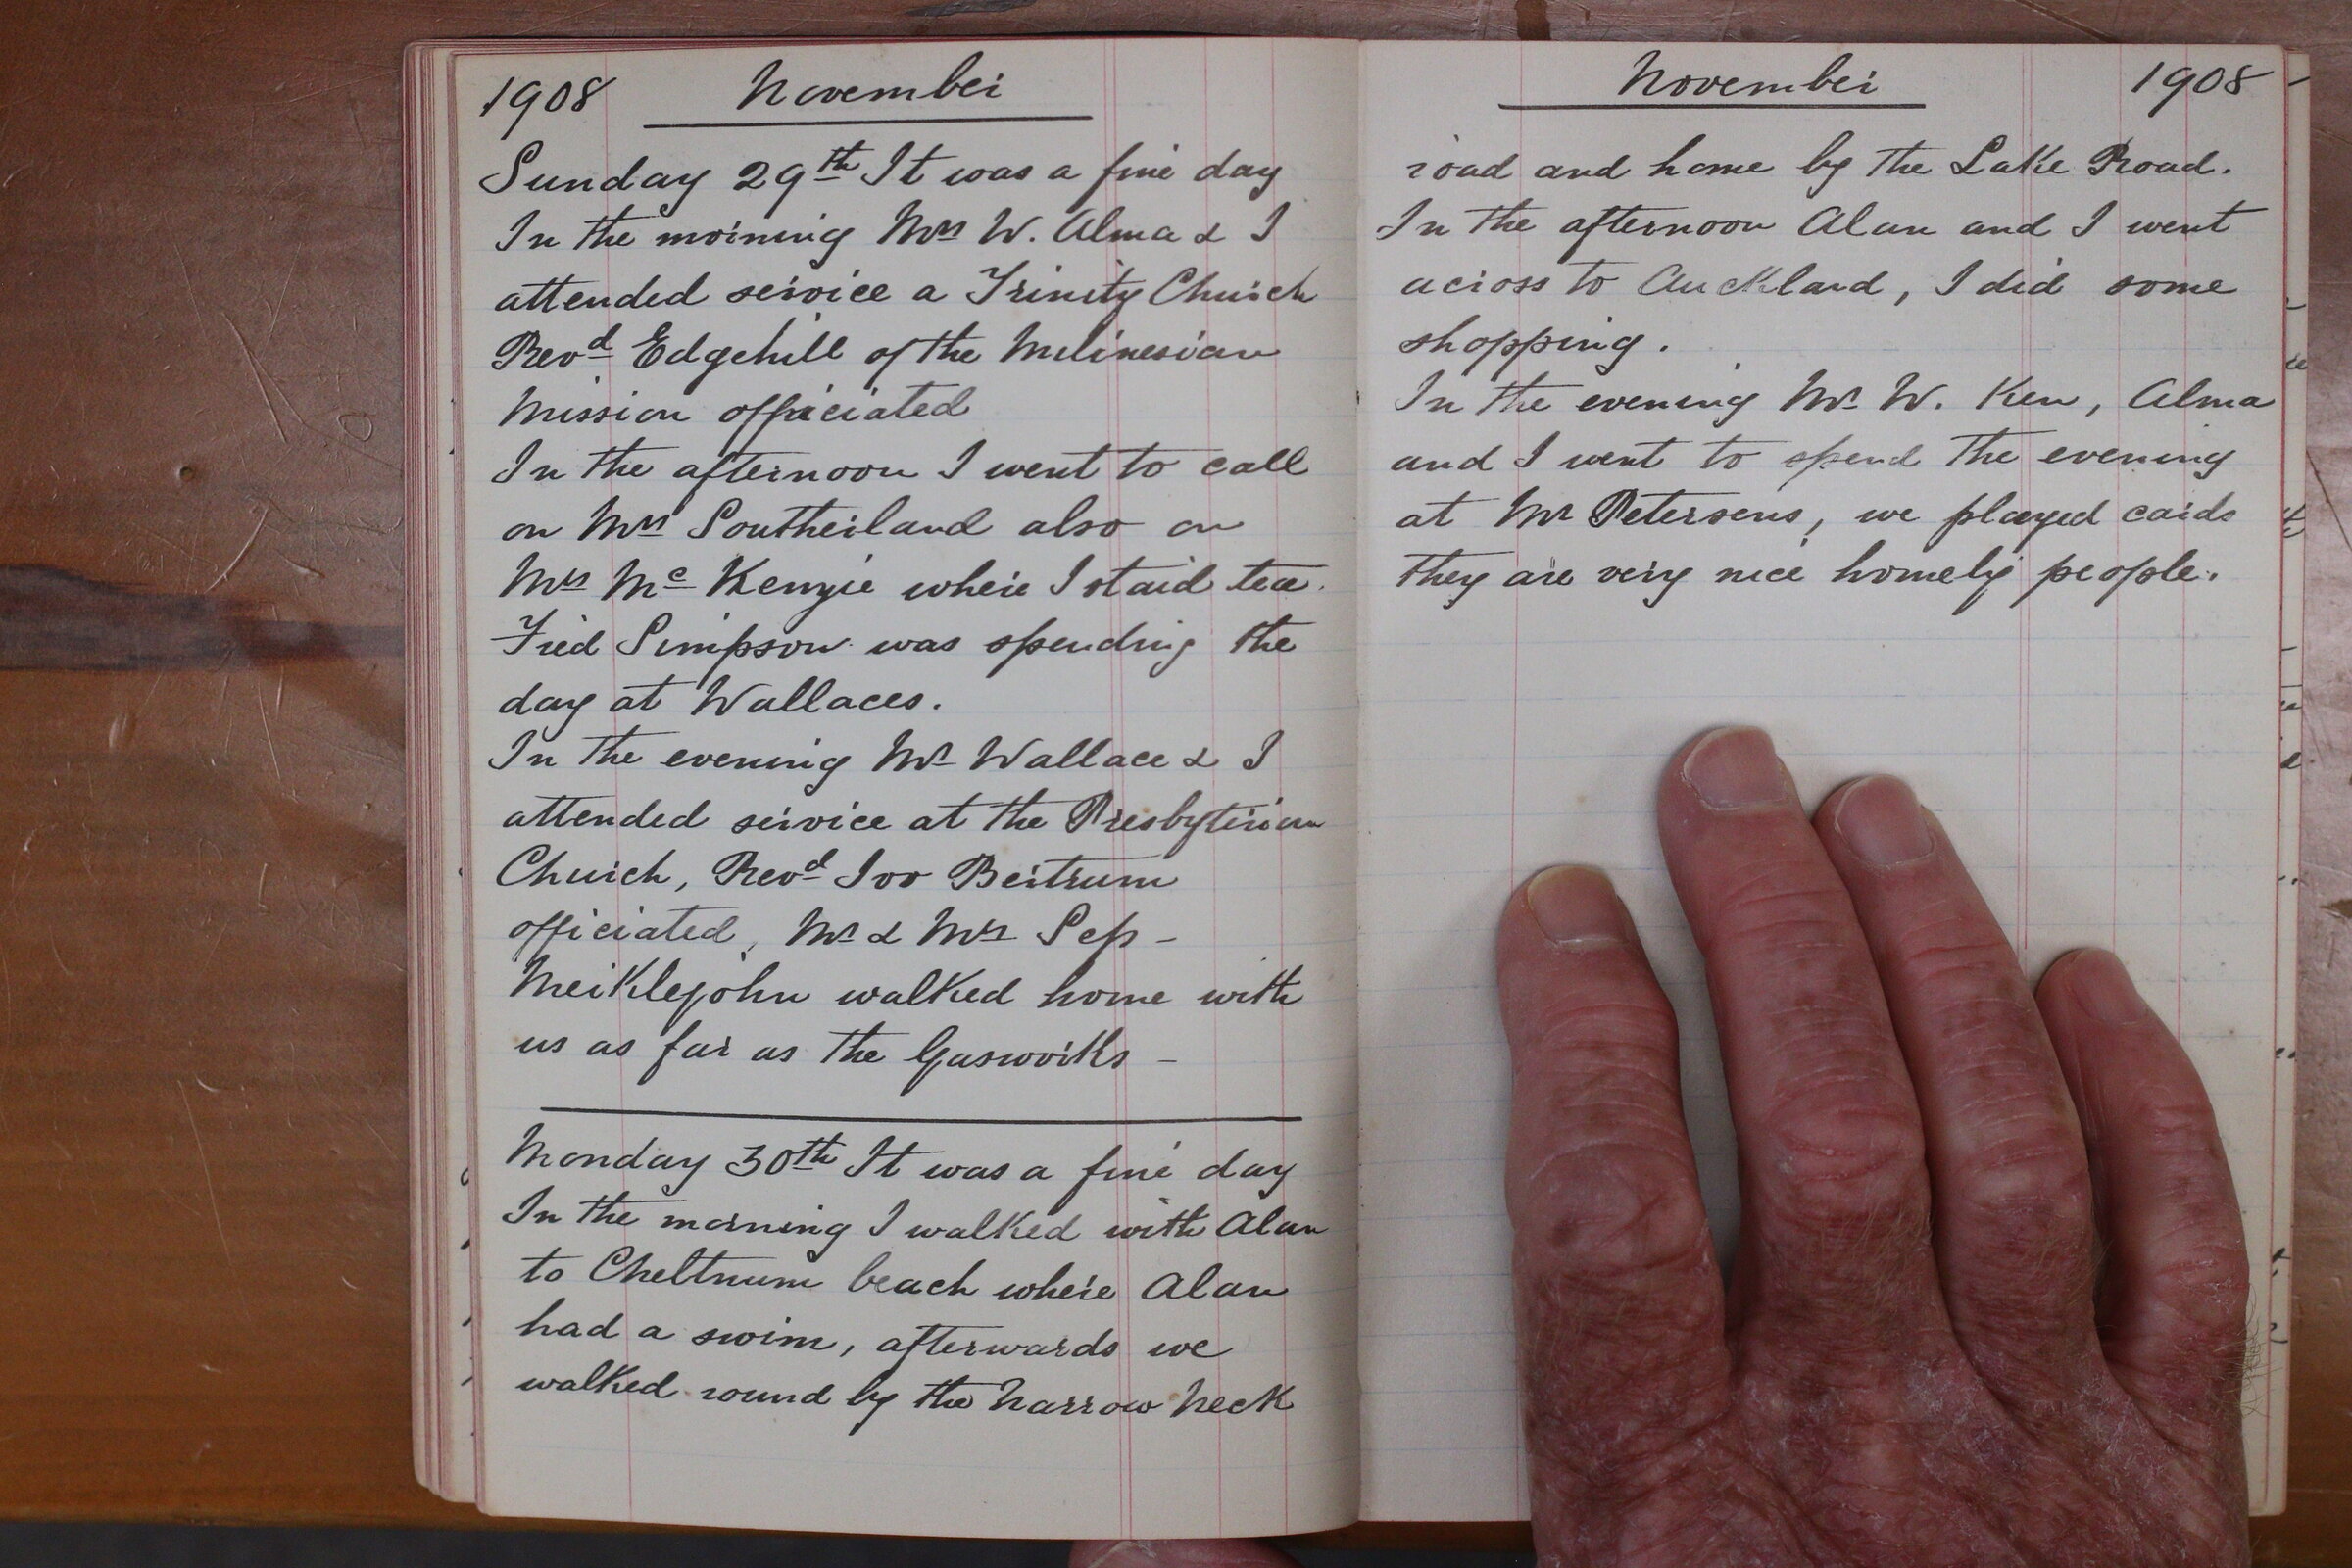 1908 November
Sunday 29th It was a fine day
In the morning Mrs W. Alma & I
attended service a Trinity Church
Revd Edgehill of the Melinesian
Mission officiated
In the afternoon I went to call
on Mrs Southerland also on
Mrs Mc Kenzie where I staid tea.
Fred Simpson was spending the
day at Wallaces.
In the evening Mr Wallace & I
attended service at the Presbyterian
Church, Revd Ivo Bertrum
officiated, Mr & Mrs Sep -
Meiklejohn walked home with
us as far as the Gasworks -
Monday 30th It was a fine day
In the morning I walked with Alan
to Cheltnum beach where Alan
had a swim, afterwards we
walked round by the Narrow Neck
November 1908
road and home by the Lake Road.
In the afternoon Alan and I went
across to Auckland, I did some
shopping.
In the evening Mr W. Ken, Alma
and I went to spend the evening
at Mr Petersens, we played cards
they are very nice homely people.